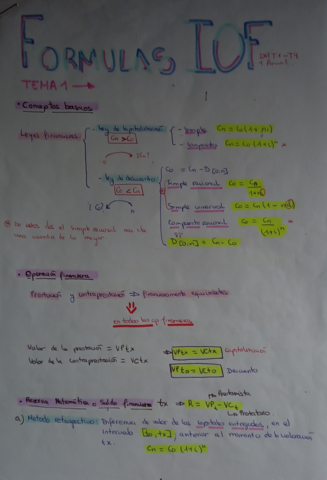 FORMULAS IOF
TEMA 1
• Conceptos basicos
Leyes financieras
- Ley de capitalización
Cn > Co
- Simple Cn = Co (1 + n·i)
- Compuesta Cn = Co (1+i)^n
- Ley de descuento
Co < Cn
Co = Cn - D[0,n]
Simple racional Co = Cn / 1+n·i
Simple comercial Co = Cn (1 - n·d)
Compuesto racional Co = Cn / (1+i)^n
D[0,n] = Cn - Co
• Operación financiera
Prestación y contraprestación => financieramente equivalentes
en todas las op financieras
Valor de la prestación = VPtx
Valor de la contraprestación = VCtx
VPtx = VCtx Capitalización
VPto = VCto Descuento
• Reserva Matemática o Saldo financiero tx => R = VPt - VCt
Prestamista
Prestatario
a) Metodo retrospectivo: Diferencia de valor de los capitales entregados, en el
intervalo [to, tx], anterior al momento de la valoración
tx.
Cn = Co (1+i)^n